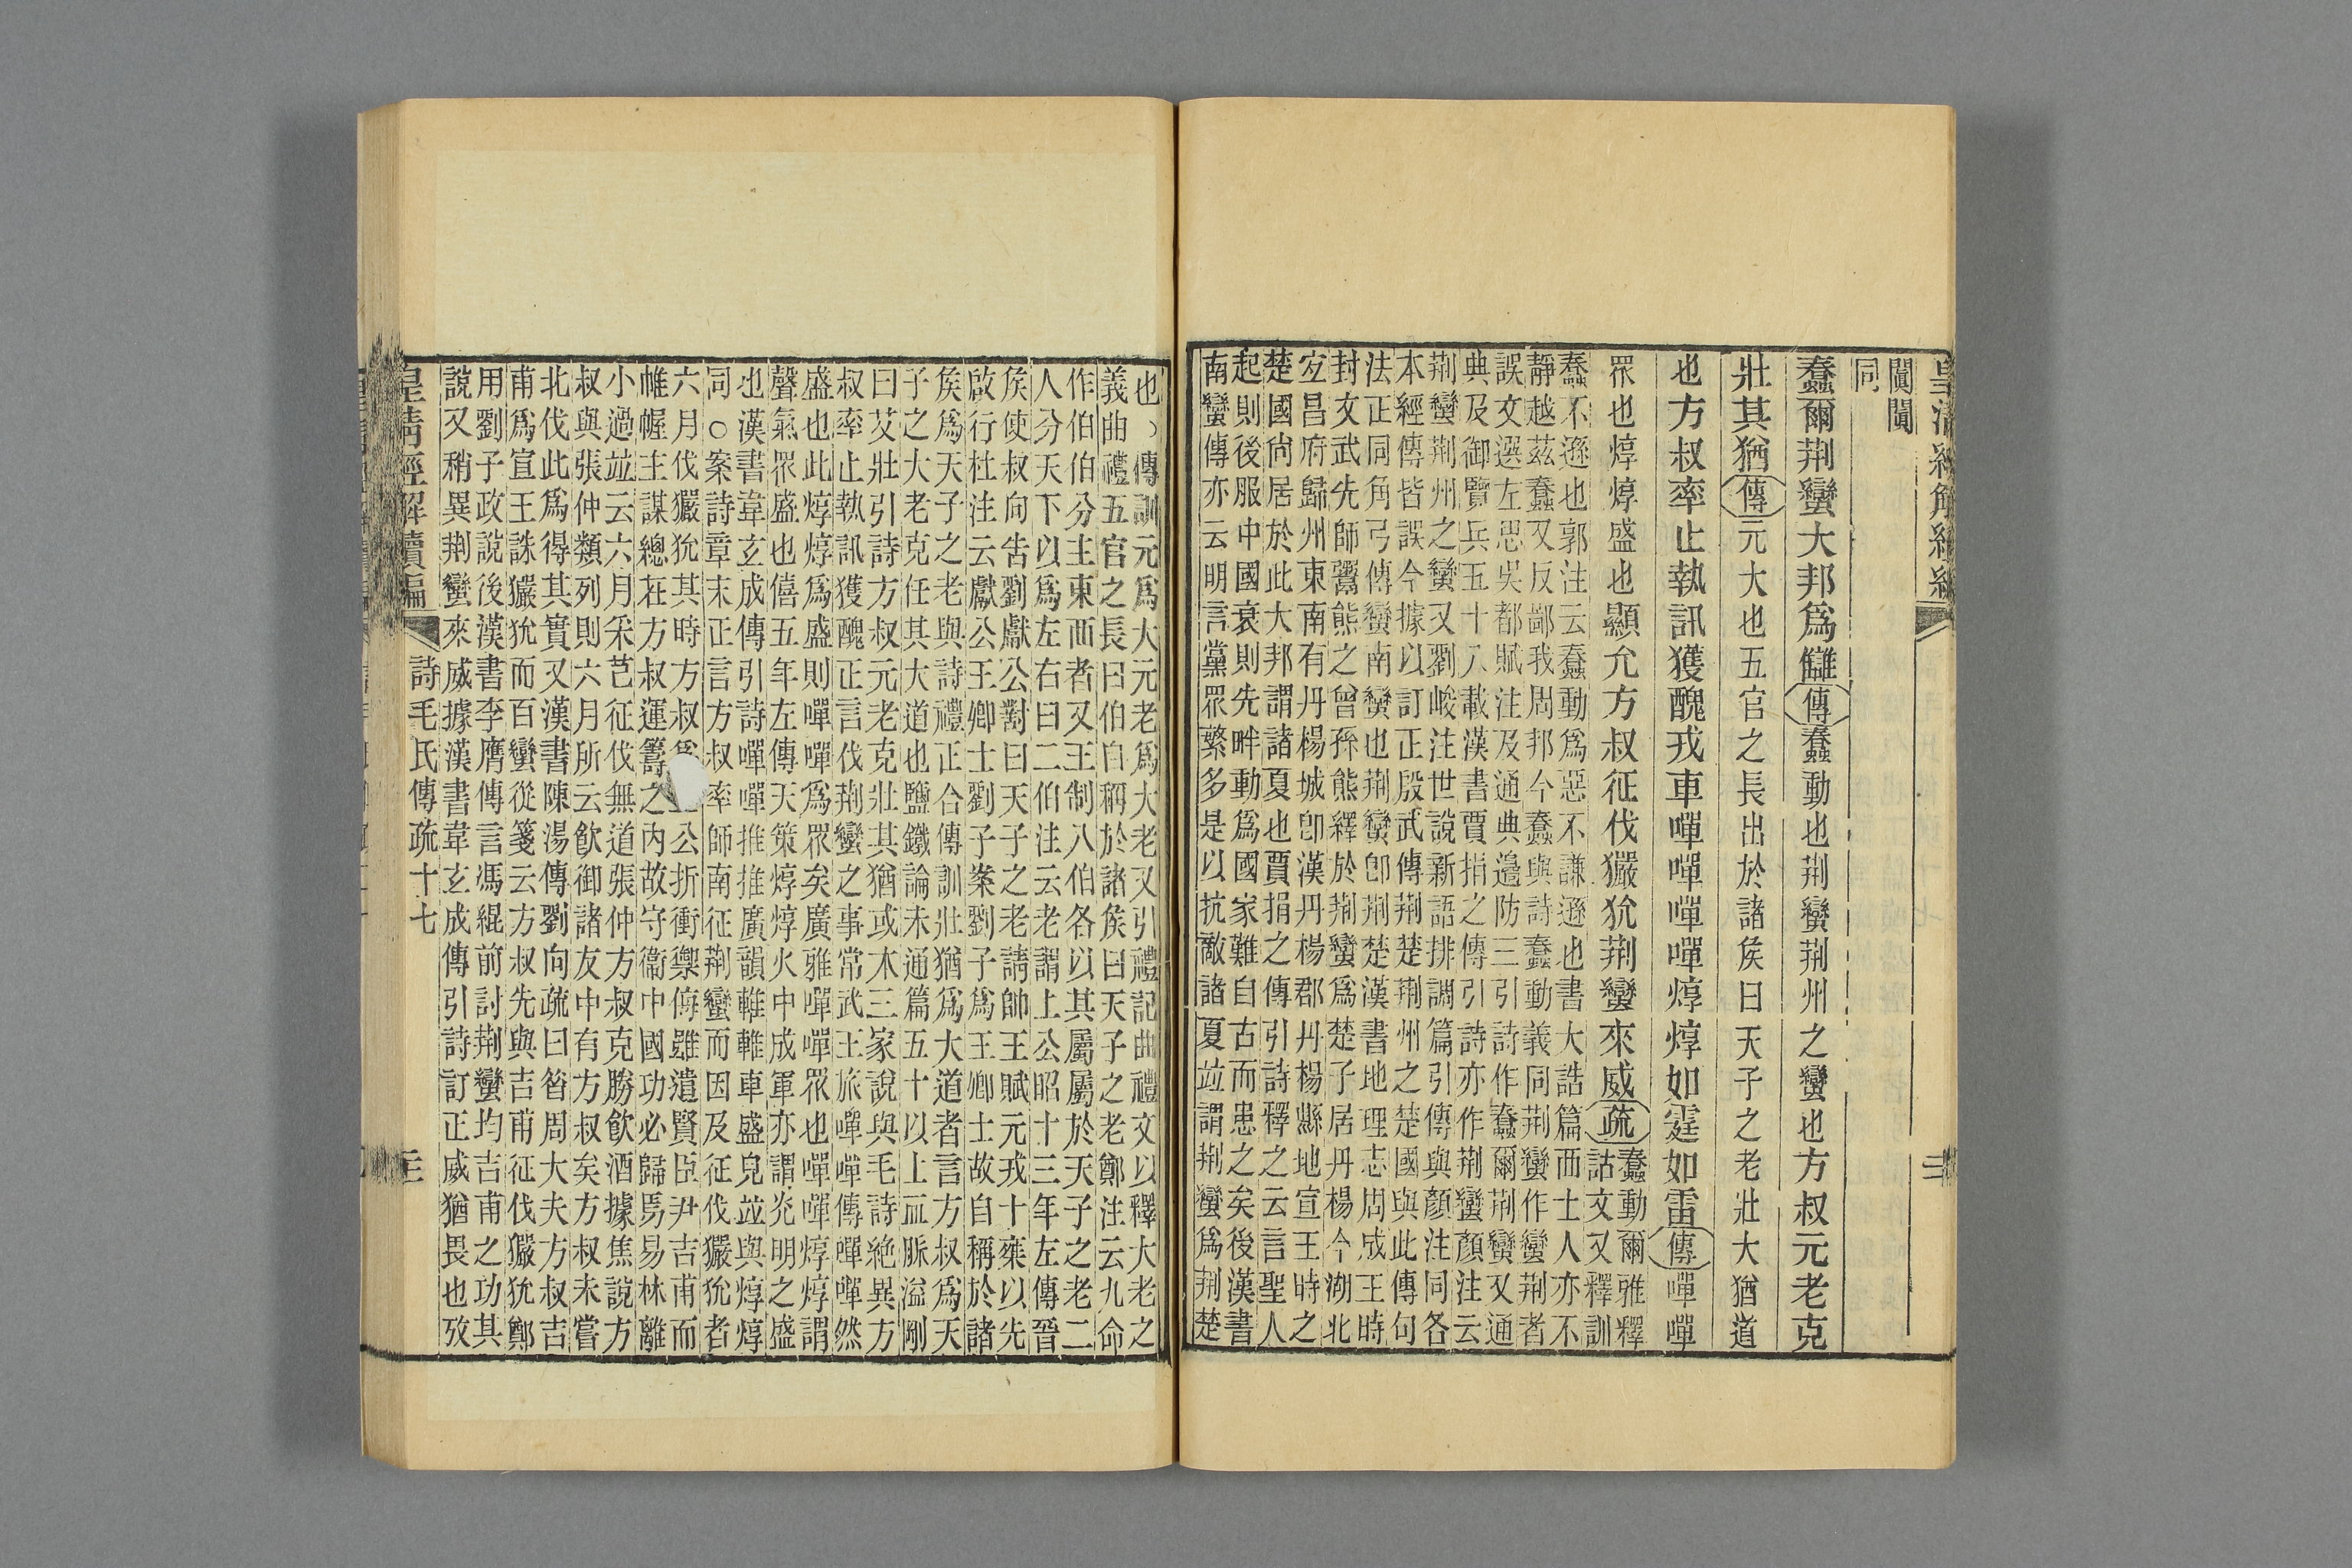 闐闐
同
蠢爾荆蠻大邦爲讎傳蠢動也荆蠻荆州之蠻也方叔元老克
壯其猶傳元大也五官之長出於諸矦曰天子之老壯大猶道
也方叔率止執訊獲醜戎車嘽嘽嘽嘽焞焞如霆如雷傳嘽嘽
眾也焞焞盛也顯允方叔征伐玁狁荆蠻來威疏
蠢動爾雅釋
詁文又釋訓
蠢不遜也郭注云蠢動爲惡不謙遜也書大誥篇而士人亦不
靜越茲蠢又反鄙我周邦今蠢與詩蠢動義同荆蠻作蠻荆者
誤文選左思吳都賦注及通典邊防三引詩作蠢爾荆蠻又通
典及御覽兵五十八載漢書賈捐之傳引詩亦作荆蠻顏注云
荆蠻荆州之蠻又劉峻注世說新語排調篇引傳與顏注同各
本經傳皆誤今據以訂正殷武傳荆楚荆州之楚國與此傳句
法正同角弓傳蠻南蠻也荆蠻卽荆楚漢書地理志周成王時
封文武先師鬻熊之曾孫熊繹於荆蠻爲楚子居丹楊今湖北
宐昌府歸州東南有丹楊城卽漢丹楊郡丹楊縣地宣王時之
楚國尙居於此大邦謂諸夏也賈捐之傳引詩釋之云言聖人
起則後服中國衰則先畔動爲國家難自古而患之矣後漢書
南蠻傳亦云明言黨眾緐多是以抗敵諸夏竝謂荆蠻爲荆楚
也傳訓元爲大元老爲大老又引禮記曲禮文以釋大老之
義曲禮五官之長曰伯自稱於諸矦曰天子之老鄭注云九命
作伯伯分主東西者又王制八伯各以其屬屬於天子之老二
人分天下以爲左右曰二伯注云老謂上公昭十三年左傳晉
矦使叔向告劉獻公對曰天子之老請帥王賦元戎十乗以先
啟行杜注云獻公王卿士劉子桊劉子爲王卿士故自稱於諸
矦爲天子之老與詩禮正合傳訓壯猶爲大道者言方叔爲天
子之大老克任其大道也鹽鐵論未通篇五十以上血脈溢剛
曰艾壯引詩方叔元老克壯其猶或本三家說與毛詩絶異方
叔率止執訊獲醜正言伐荆蠻之事常武王旅嘽嘽傳嘽嘽然
盛也此焞焞爲盛則嘽嘽爲眾矣廣雅嘽嘽眾也嘽嘽焞焞謂
聲氣眾盛也僖五年左傳天策焞焞火中成軍亦謂灮明之盛
也漢書韋玄成傳引詩嘽嘽推推廣韻䡓䡓車盛皃竝與焞焞
同○案詩章末正言方叔率師南征荆蠻而因及征伐玁狁者
六月伐玁狁其時方叔公折衝禦侮雖遣賢臣尹吉甫而
帷幄主謀總在方叔運籌之内故守衞中國功必歸焉易林離
小過竝云六月采芑征伐無道張仲方叔克勝飮酒據焦說方
叔與張仲類列則六月所云飮御諸友中有方叔矣方叔未嘗
北伐此爲得其實又漢書陳湯傳劉向疏曰昝周大夫方叔吉
甫爲宣王誅玁狁而百蠻從箋云方叔先與吉甫征伐玁狁鄭
用劉子政說後漢書李膺傳言馮緄前討荆蠻均吉甫之功其
說又稍異荆蠻來威據漢書韋玄成傳引詩訂正威猶畏也攷
皇清經解續編　詩毛氏傳疏十七